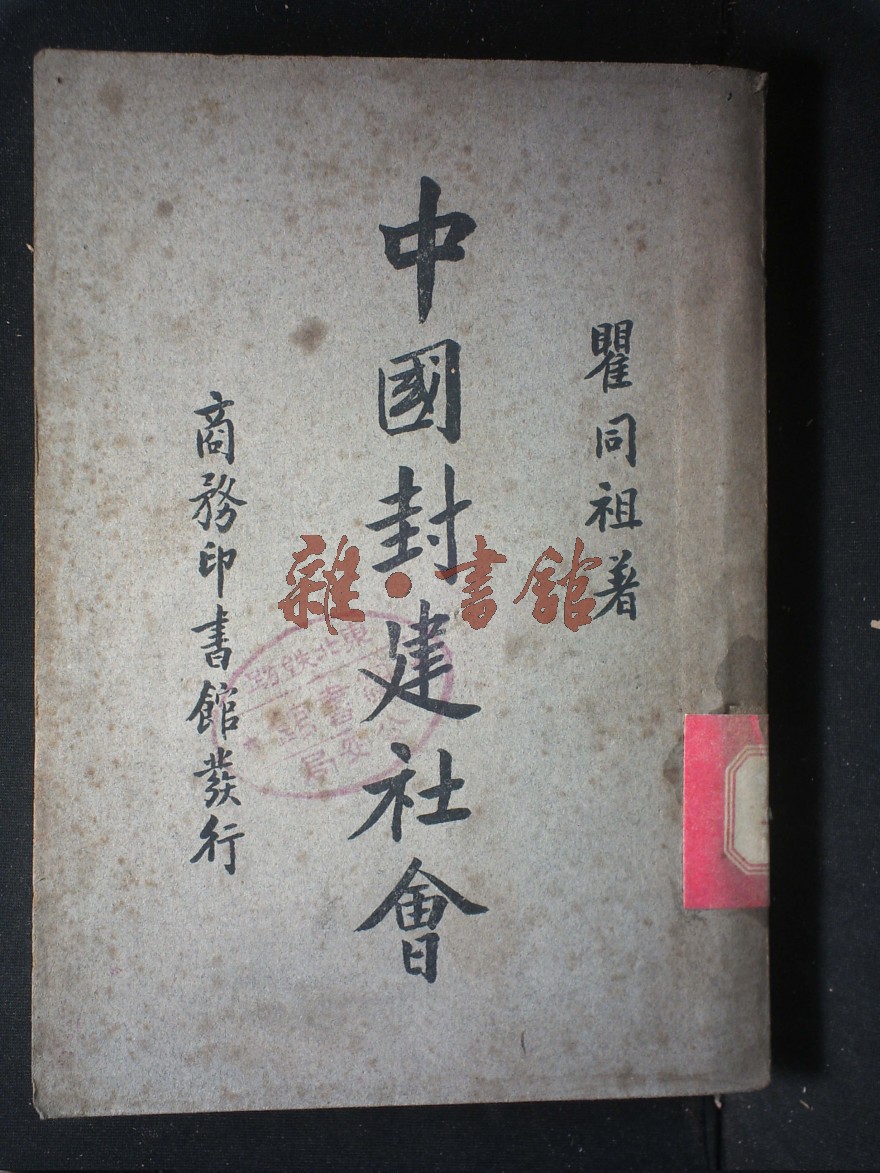 瞿同祖著
中國封建社會
商務印書館發行
雜·書館
東北鉄路
圖書
局